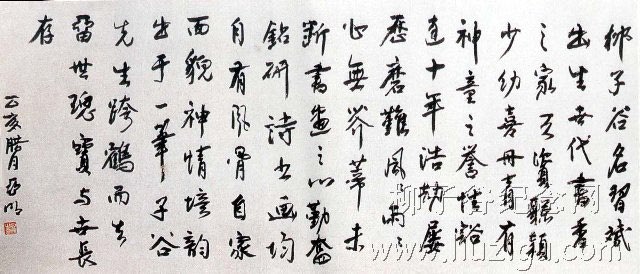 柳子谷名習斌
出生世代書香
之家天資聪颖
少幼喜丹青有
神童之誉情豁
达十年浩劫屡
歷磨難風雨
心無芥蒂未
断書畫之心勤奮
鉆研詩書画均
自有風骨自家
面貌神情境韵
出于一筆子谷
先生跨鶴而去
留世瑰寶与世長
存
乙亥腊月亚明
柳子谷纪念网
www.liuzigu.com